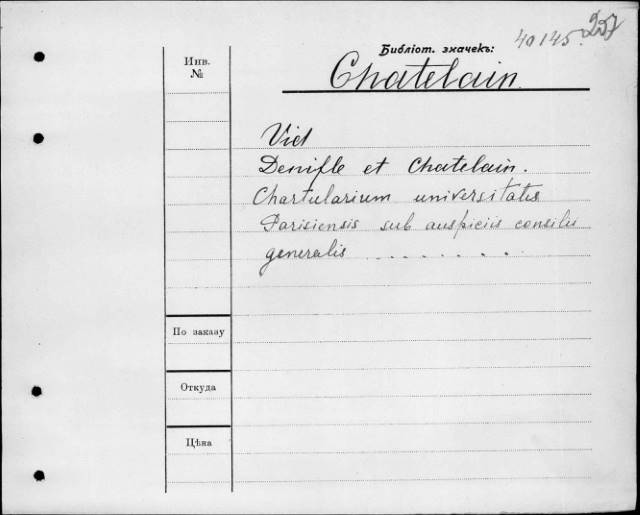 40145. 257
Библіот. значекъ:
Chatelain.
Инв.
№
Vid
Denifle et Chatelain.
Chartularium universitatis
Parisiensis sub auspiciis consilii
generalis . . . . . . . .
По заказу
Откуда
Цѣна